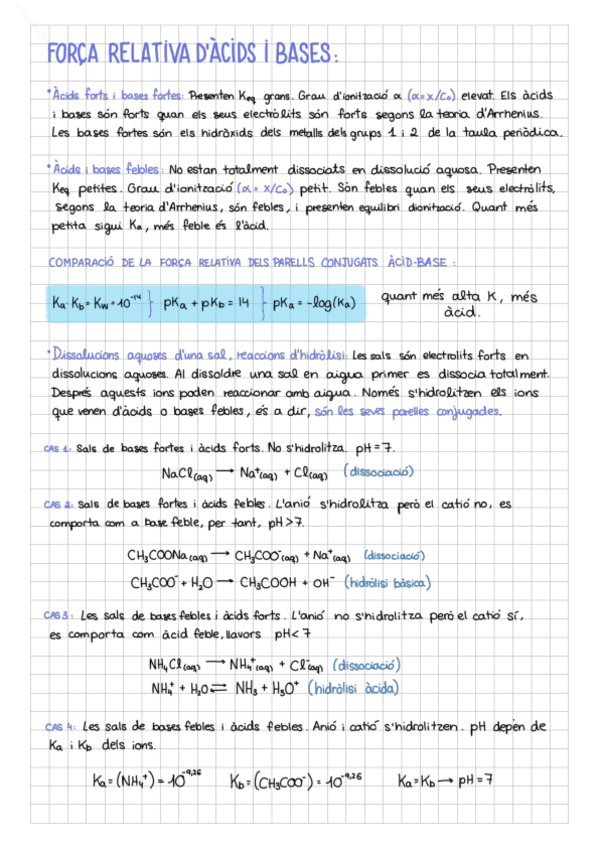 FORÇA RELATIVA D'ÀCIDS I BASES:
• Àcids forts i bases fortes: Presenten Keq grans. Grau d'ionització α (α = x/C₀) elevat. Els àcids
i bases són forts quan els seus electròlits són forts segons la teoria d'Arrhenius.
Les bases fortes són els hidròxids dels metalls dels grups 1 i 2 de la taula periòdica.
• Àcids i bases febles: No estan totalment dissociats en dissolució aquosa. Presenten
Keq petites. Grau d'ionització (α = x/C₀) petit. Són febles quan els seus electròlits,
segons la teoria d'Arrhenius, són febles, i presenten equilibri dionització. Quant més
petita sigui Ka, més feble és l'àcid.
COMPARACIÓ DE LA FORÇA RELATIVA DELS PARELLS CONJUGATS ÀCID-BASE:
Ka · Kb = Kw = 10⁻¹⁴ } pKa + pKb = 14 } pKa = -log(Ka) quant més alta K, més
àcid.
• Dissolucions aquoses d'una sal, reaccions d'hidròlisi: Les sals són electròlits forts en
dissolucions aquoses. Al dissoldre una sal en aigua primer es dissocia totalment.
Després aquests ions poden reaccionar amb aigua. Només s'hidrolitzen els ions
que venen d'àcids o bases febles, és a dir, són les seves parelles conjugades.
CAS 1: Sals de bases fortes i àcids forts. No s'hidrolitza. pH = 7.
NaCl(aq) → Na⁺(aq) + Cl⁻(aq) (dissociació)
CAS 2: Sals de bases fortes i àcids febles. L'anió s'hidrolitza però el catió no, es
comporta com a base feble, per tant, pH > 7.
CH₃COONa(aq) → CH₃COO⁻(aq) + Na⁺(aq) (dissociació)
CH₃COO⁻ + H₂O → CH₃COOH + OH⁻ (hidròlisi bàsica)
CAS 3: Les sals de bases febles i àcids forts. L'anió no s'hidrolitza però el catió sí,
es comporta com àcid feble, llavors pH < 7
NH₄Cl(aq) → NH₄⁺(aq) + Cl⁻(aq) (dissociació)
NH₄⁺ + H₂O ⇌ NH₃ + H₃O⁺ (hidròlisi àcida)
CAS 4: Les sals de bases febles i àcids febles. Anió i catió s'hidrolitzen. pH depèn de
Ka i Kb dels ions.
Ka = (NH₄⁺) = 10⁻⁹'²⁶ Kb = (CH₃COO⁻) = 10⁻⁹'²⁶ Ka = Kb → pH = 7